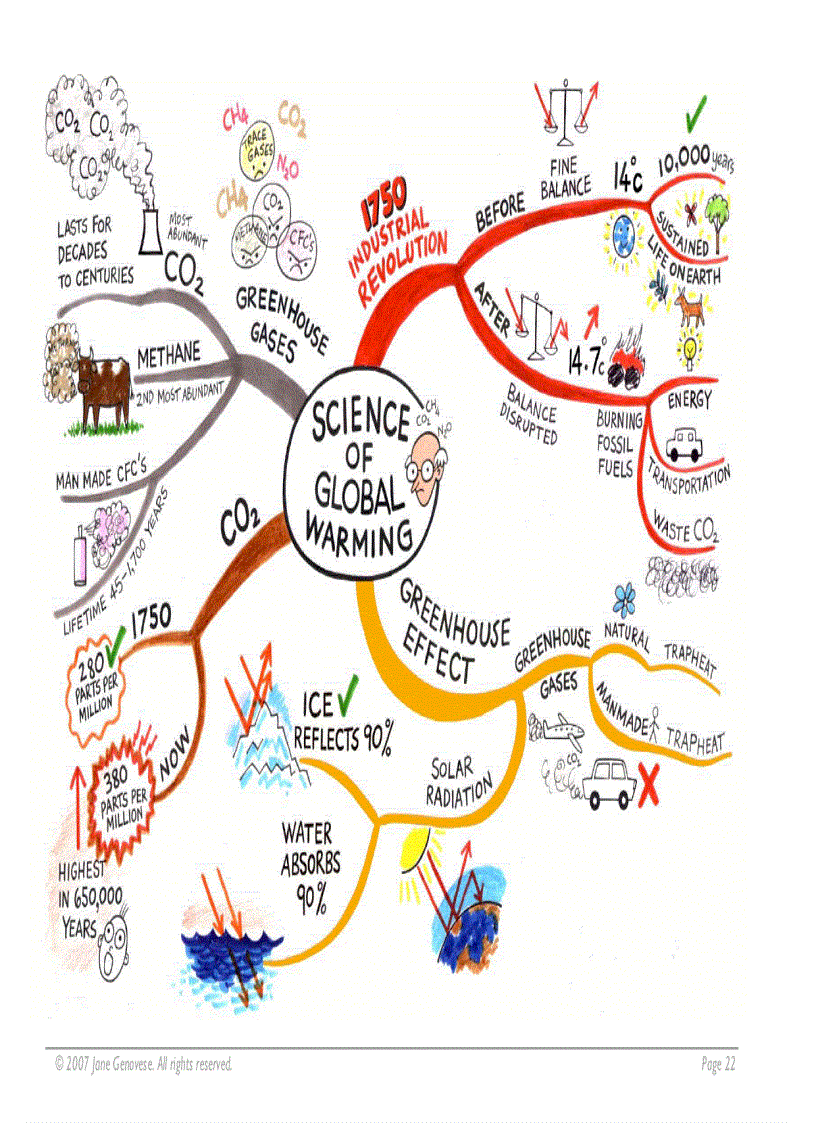 SCIENCE
OF
GLOBAL
WARMING
CH4
CO2
N2O
1750
INDUSTRIAL
REVOLUTION
BEFORE
FINE
BALANCE
14°c
10,000 years
SUSTAINED
LIFE ON EARTH
AFTER
BALANCE
DISRUPTED
14.7°c
BURNING
FOSSIL
FUELS
ENERGY
TRANSPORTATION
WASTE CO2
GREENHOUSE
EFFECT
GREENHOUSE
GASES
NATURAL
TRAP HEAT
MANMADE
TRAP HEAT
CO2
SOLAR
RADIATION
ICE
REFLECTS 90%
WATER
ABSORBS
90%
CO2
1750
280
PARTS PER
MILLION
NOW
380
PARTS PER
MILLION
HIGHEST
IN 650,000
YEARS
GREENHOUSE
GASES
CH4
CO2
TRACE
GASES
N2O
CH4
CO2
METHANE
CFC'S
CO2
MOST
ABUNDANT
CO2 CO2
CO2
LASTS FOR
DECADES
TO CENTURIES
METHANE
2ND MOST ABUNDANT
MAN MADE CFC'S
LIFETIME 45-1,700 YEARS
© 2007 Jane Genovese. All rights reserved.
Page 22